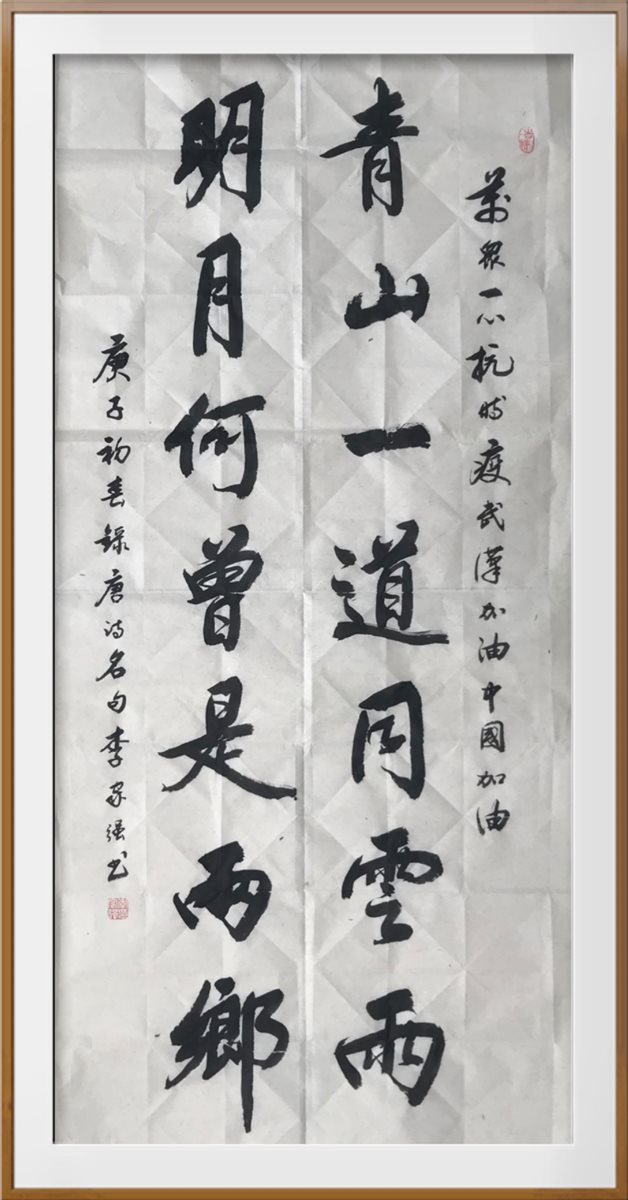 萬眾一心抗時疫武漢加油中國加油
青山一道同雲雨
明月何曾是兩鄉
庚子初春錄唐詩名句李家强书